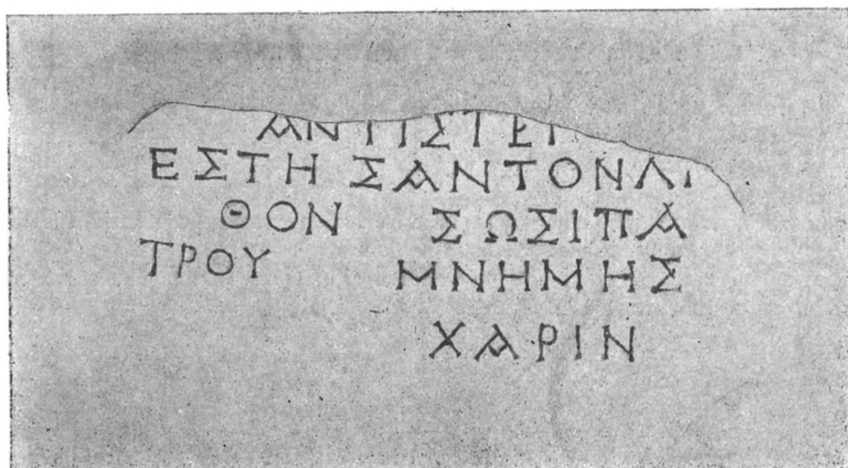 ΑΝΤΙΣΤΕΙ
ΕΣΤΗ ΣΑΝΤΟΝΛΙ
ΘΟΝ ΣΩΣΙΠΑ
ΤΡΟΥ ΜΝΗΜΗΣ
ΧΑΡΙΝ